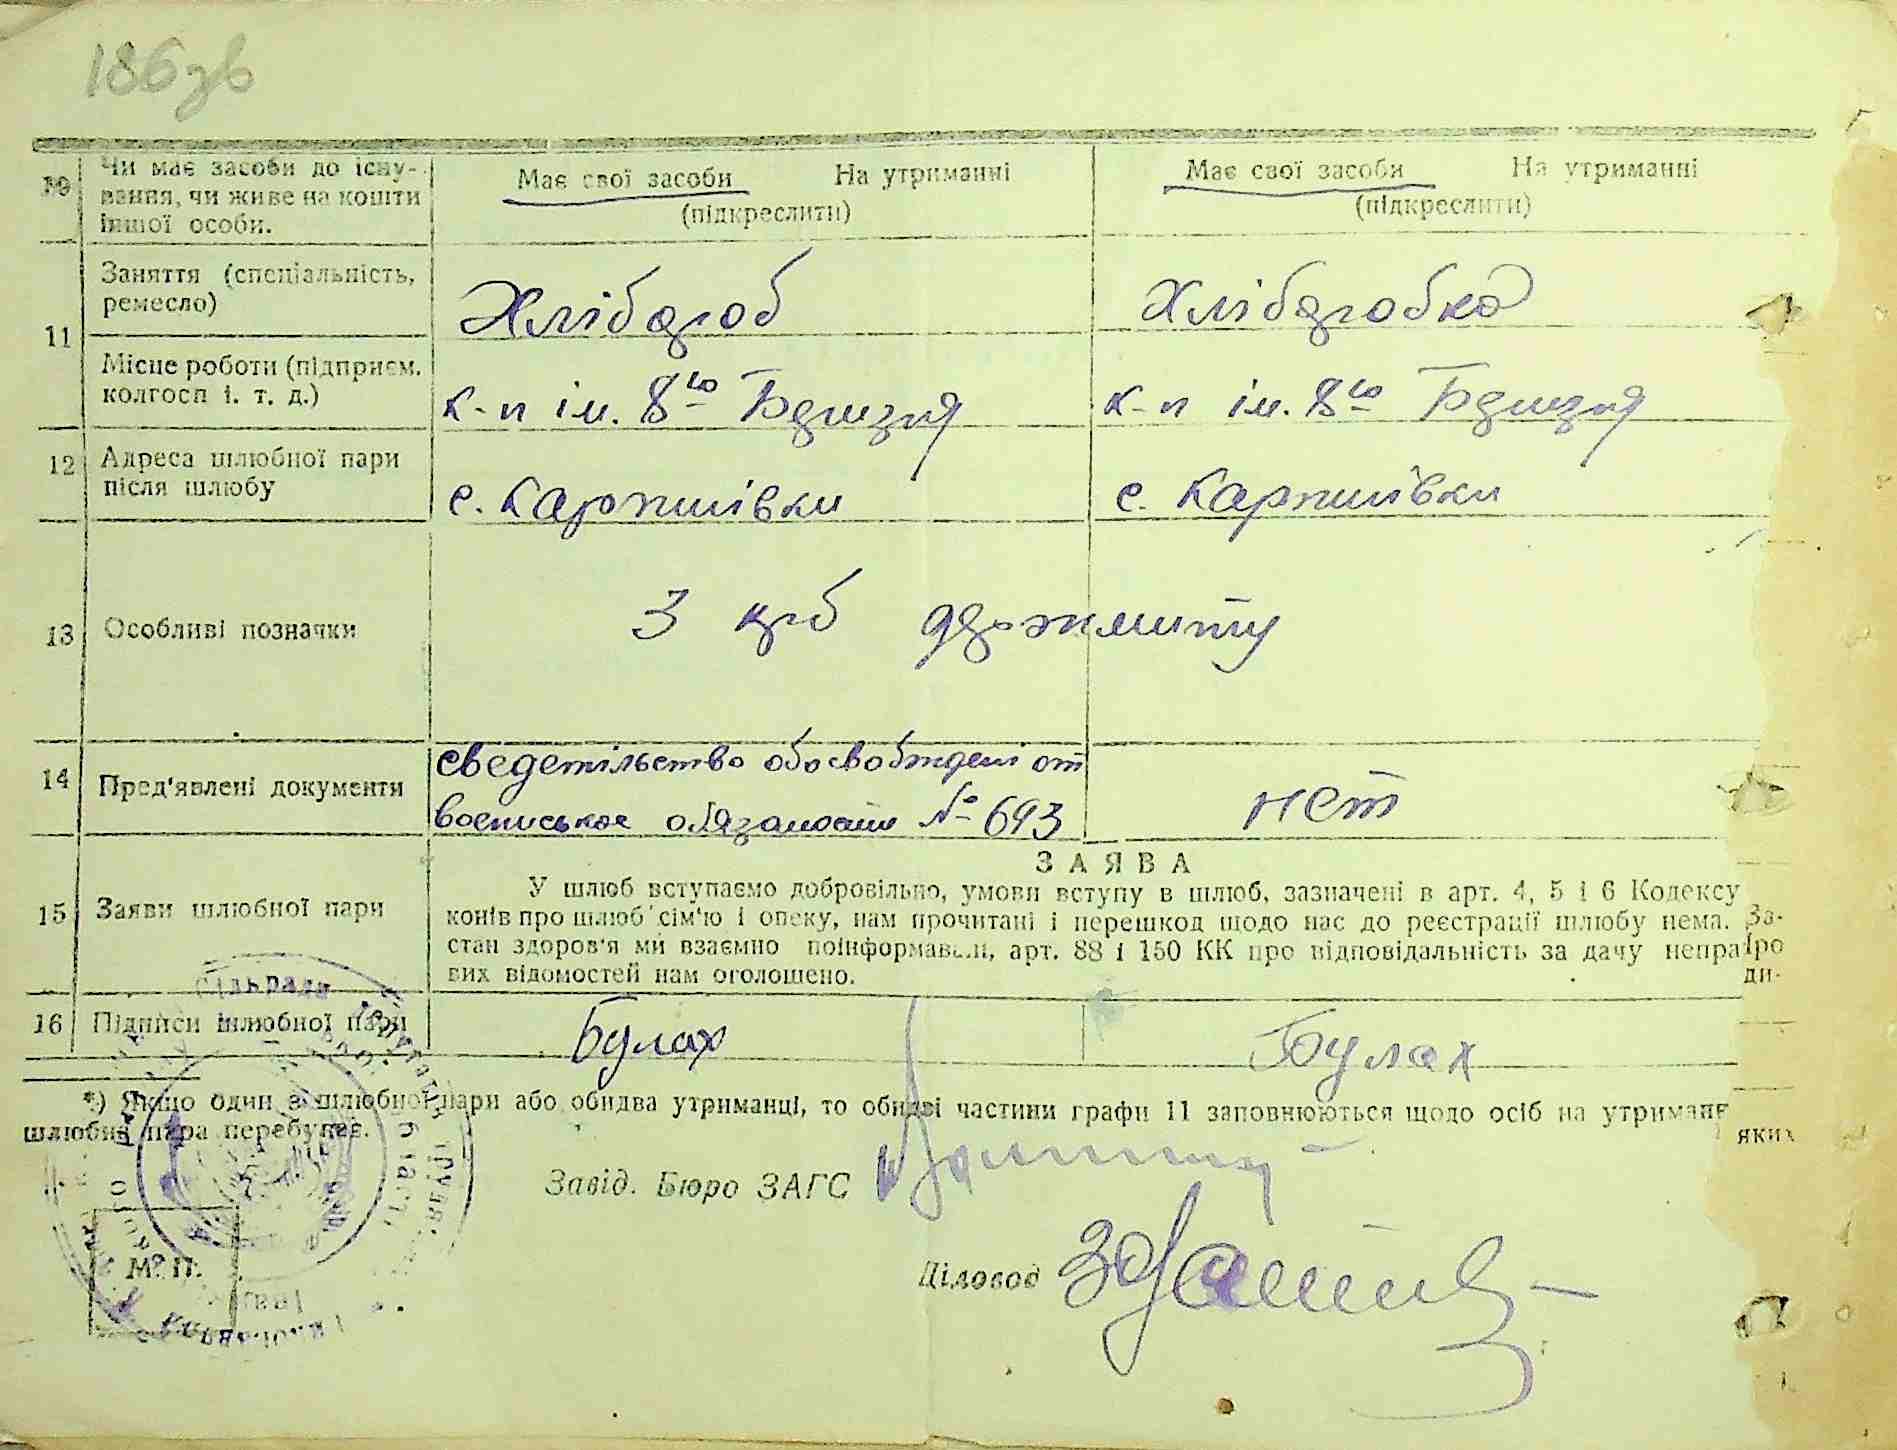 186 зв
10 Чи має засоби до існу-
вання, чи живе на кошти
іншої особи.
Має свої засоби На утриманні
(підкреслити)
Має свої засоби На утриманні
(підкреслити)
11 Заняття (спеціальність,
ремесло)
Хлібороб
Хліборобка
Місце роботи (підприєм.
колгосп і. т. д.)
к-п ім. 8го З'їзду
к-п ім. 8го
12 Адреса шлюбної пари
після шлюбу
с. Карпилівки
с. Карпилівки
13 Особливі позначки
3 крб держмита
14 Пред'явлені документи
сведетільство обосвобждені от
воєниськое обязаности № 693
нет
15 Заяви шлюбної пари
ЗАЯВА
У шлюб вступаємо добровільно, умови вступу в шлюб, зазначені в арт. 4, 5 і 6 Кодексу За-
конів про шлюб сім'ю і опеку, нам прочитані і перешкод щодо нас до реєстрації шлюбу нема. Про
стан здоров'я ми взаємно поінформавали, арт. 88 і 150 КК про відповідальність за дачу неправди-
вих відомостей нам оголошено.
16 Підписи шлюбної пари
Булах
Булах
*) Якщо один з шлюбної пари або обидва утриманці, то обидві частини графи 11 заповнюються щодо осіб на утриманні яких
шлюбна пара перебуває.
Завід. Бюро ЗАГС
Діловод
М. П.
сільрада